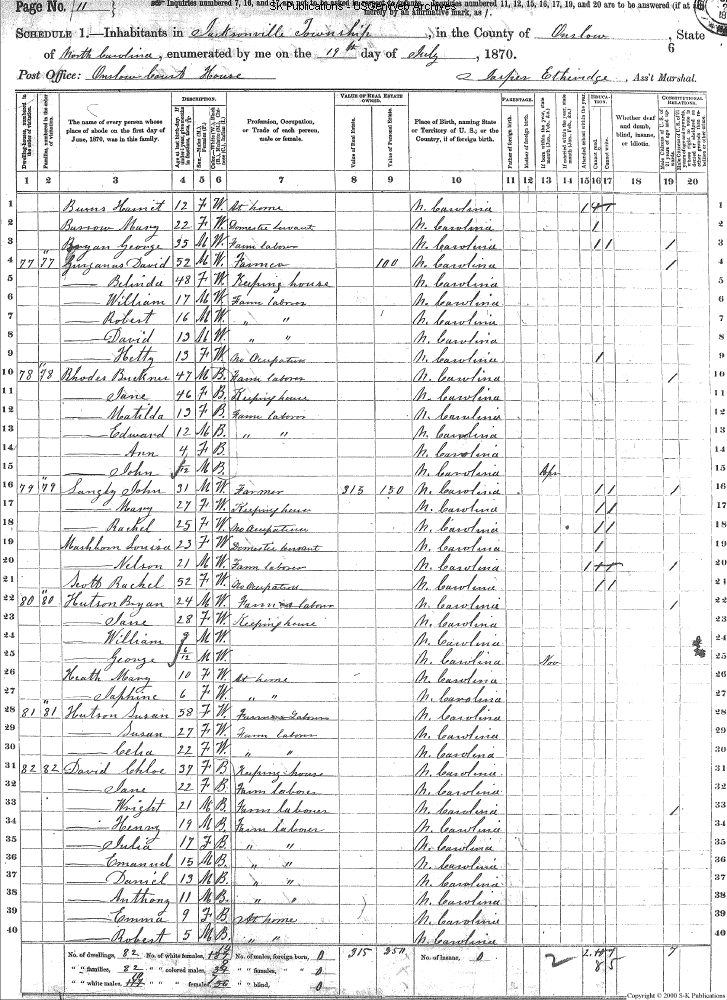 Page No. 11
Inquiries numbered 7, 16, and 17 are not to be asked in respect to infants. Inquiries numbered 11, 12, 15, 16, 17, 19, and 20 are to be answered (if at all)
S-K Publications - USGenWeb Archives
merely by an affirmative mark, as /.
SCHEDULE 1.—Inhabitants in Jacksonville Township, in the County of Onslow, State
of North Carolina, enumerated by me on the 19th day of July, 1870.
6
Post Office: Onslow Court House
Jasper Etheridge, Ass't Marshal.
Dwelling-houses, numbered in the order of visitation.
Families, numbered in the order of visitation.
The name of every person whose place of abode on the first day of June, 1870, was in this family.
DESCRIPTION.
Profession, Occupation, or Trade of each person, male or female.
VALUE OF REAL ESTATE OWNED.
Value of Real Estate.
Value of Personal Estate.
Place of Birth, naming State or Territory of U. S.; or the Country, if of foreign birth.
PARENTAGE.
Father of foreign birth.
Mother of foreign birth.
EDUCATION.
Attended school within the year.
Cannot read.
Cannot write.
Whether deaf and dumb, blind, insane, or idiotic.
CONSTITUTIONAL RELATIONS.
1 2 3 4 5 6 7 8 9 10 11 12 13 14 15 16 17 18 19 20
1 Burns Harriet 12 F W. At home N. Carolina 1 1
2 Barrow Mary 22 F W. Domestic servant N. Carolina 1 2
3 Bryan George 35 M W. Farm labor N. Carolina 1 1 1 3
4 77 77 Gurganus David 52 M W. Farmer 100 N. Carolina 1 4
5 — Belinda 48 F W. Keeping house N. Carolina 5
6 — William 17 M W. Farm laborer N. Carolina 6
7 — Robert 16 M W. " " N. Carolina 7
8 — David 13 M W. " " N. Carolina 8
9 — Hetty 13 F W. No Occupation N. Carolina 1 9
10 78 78 Rhodes Buckner 47 M B. Farm labor N. Carolina 1 10
11 — Jane 46 F B. Keeping house N. Carolina 11
12 — Matilda 13 F B. Farm laborer N. Carolina 12
13 — Edward 12 M B. " " N. Carolina 13
14 — Ann 4 F B. N. Carolina 14
15 — John M B. N. Carolina Apr 15
16 79 79 Langly John 31 M W. Farmer 315 150 N. Carolina 1 1 1 16
17 — Mary 27 F W. Keeping house N. Carolina 1 1 17
18 — Rachel 25 F W. No Occupation N. Carolina 1 1 18
19 Marhborn Louisa 23 F W. Domestic servant N. Carolina 1 19
20 — Nelson 21 M W. Farm laborer N. Carolina 1 1 20
21 Scott Rachel 52 F W. No Occupation N. Carolina 1 1 21
22 80 80 Hutson Bryan 24 M W. Farm labour N. Carolina 1 22
23 — Jane 28 F W. Keeping house N. Carolina 23
24 — William M W. N. Carolina 24
25 — George 6/12 M W. N. Carolina Nov 25
26 Heath Mary 10 F W. At home N. Carolina 26
27 — Saphine 6 F W. " " N. Carolina 27
28 81 81 Hutson Susan 58 F W. N. Carolina 28
29 — Susan 27 F W. Farm labour N. Carolina 29
30 — Celia 22 F W. " " N. Carolina 30
31 82 82 David Chloe 37 F B Keeping house N. Carolina 31
32 — Jane 22 F B. Farm laborer N. Carolina 32
33 — Wright 21 M B. Farm laborer N. Carolina 1 33
34 — Henry 19 M B. Farm laborer N. Carolina 34
35 — Julia 17 F B. " " N. Carolina 35
36 — Emanuel 15 M B. " " N. Carolina 36
37 — Daniel 13 M B. " " N. Carolina 37
38 — Anthony 11 M B. " " N. Carolina 38
39 — Emma 9 F B. At home N. Carolina 39
40 — Robert 5 M B. " " N. Carolina 40
No. of dwellings, 82 No. of white females, No. of males, foreign born, 0 315 250 No. of insane, 0 2 7
" " families, 82 " " colored males, " " females, " " 0 8 5
" " white males, " " females, " " blind, 0
Copyright © 2000 S-K Publications